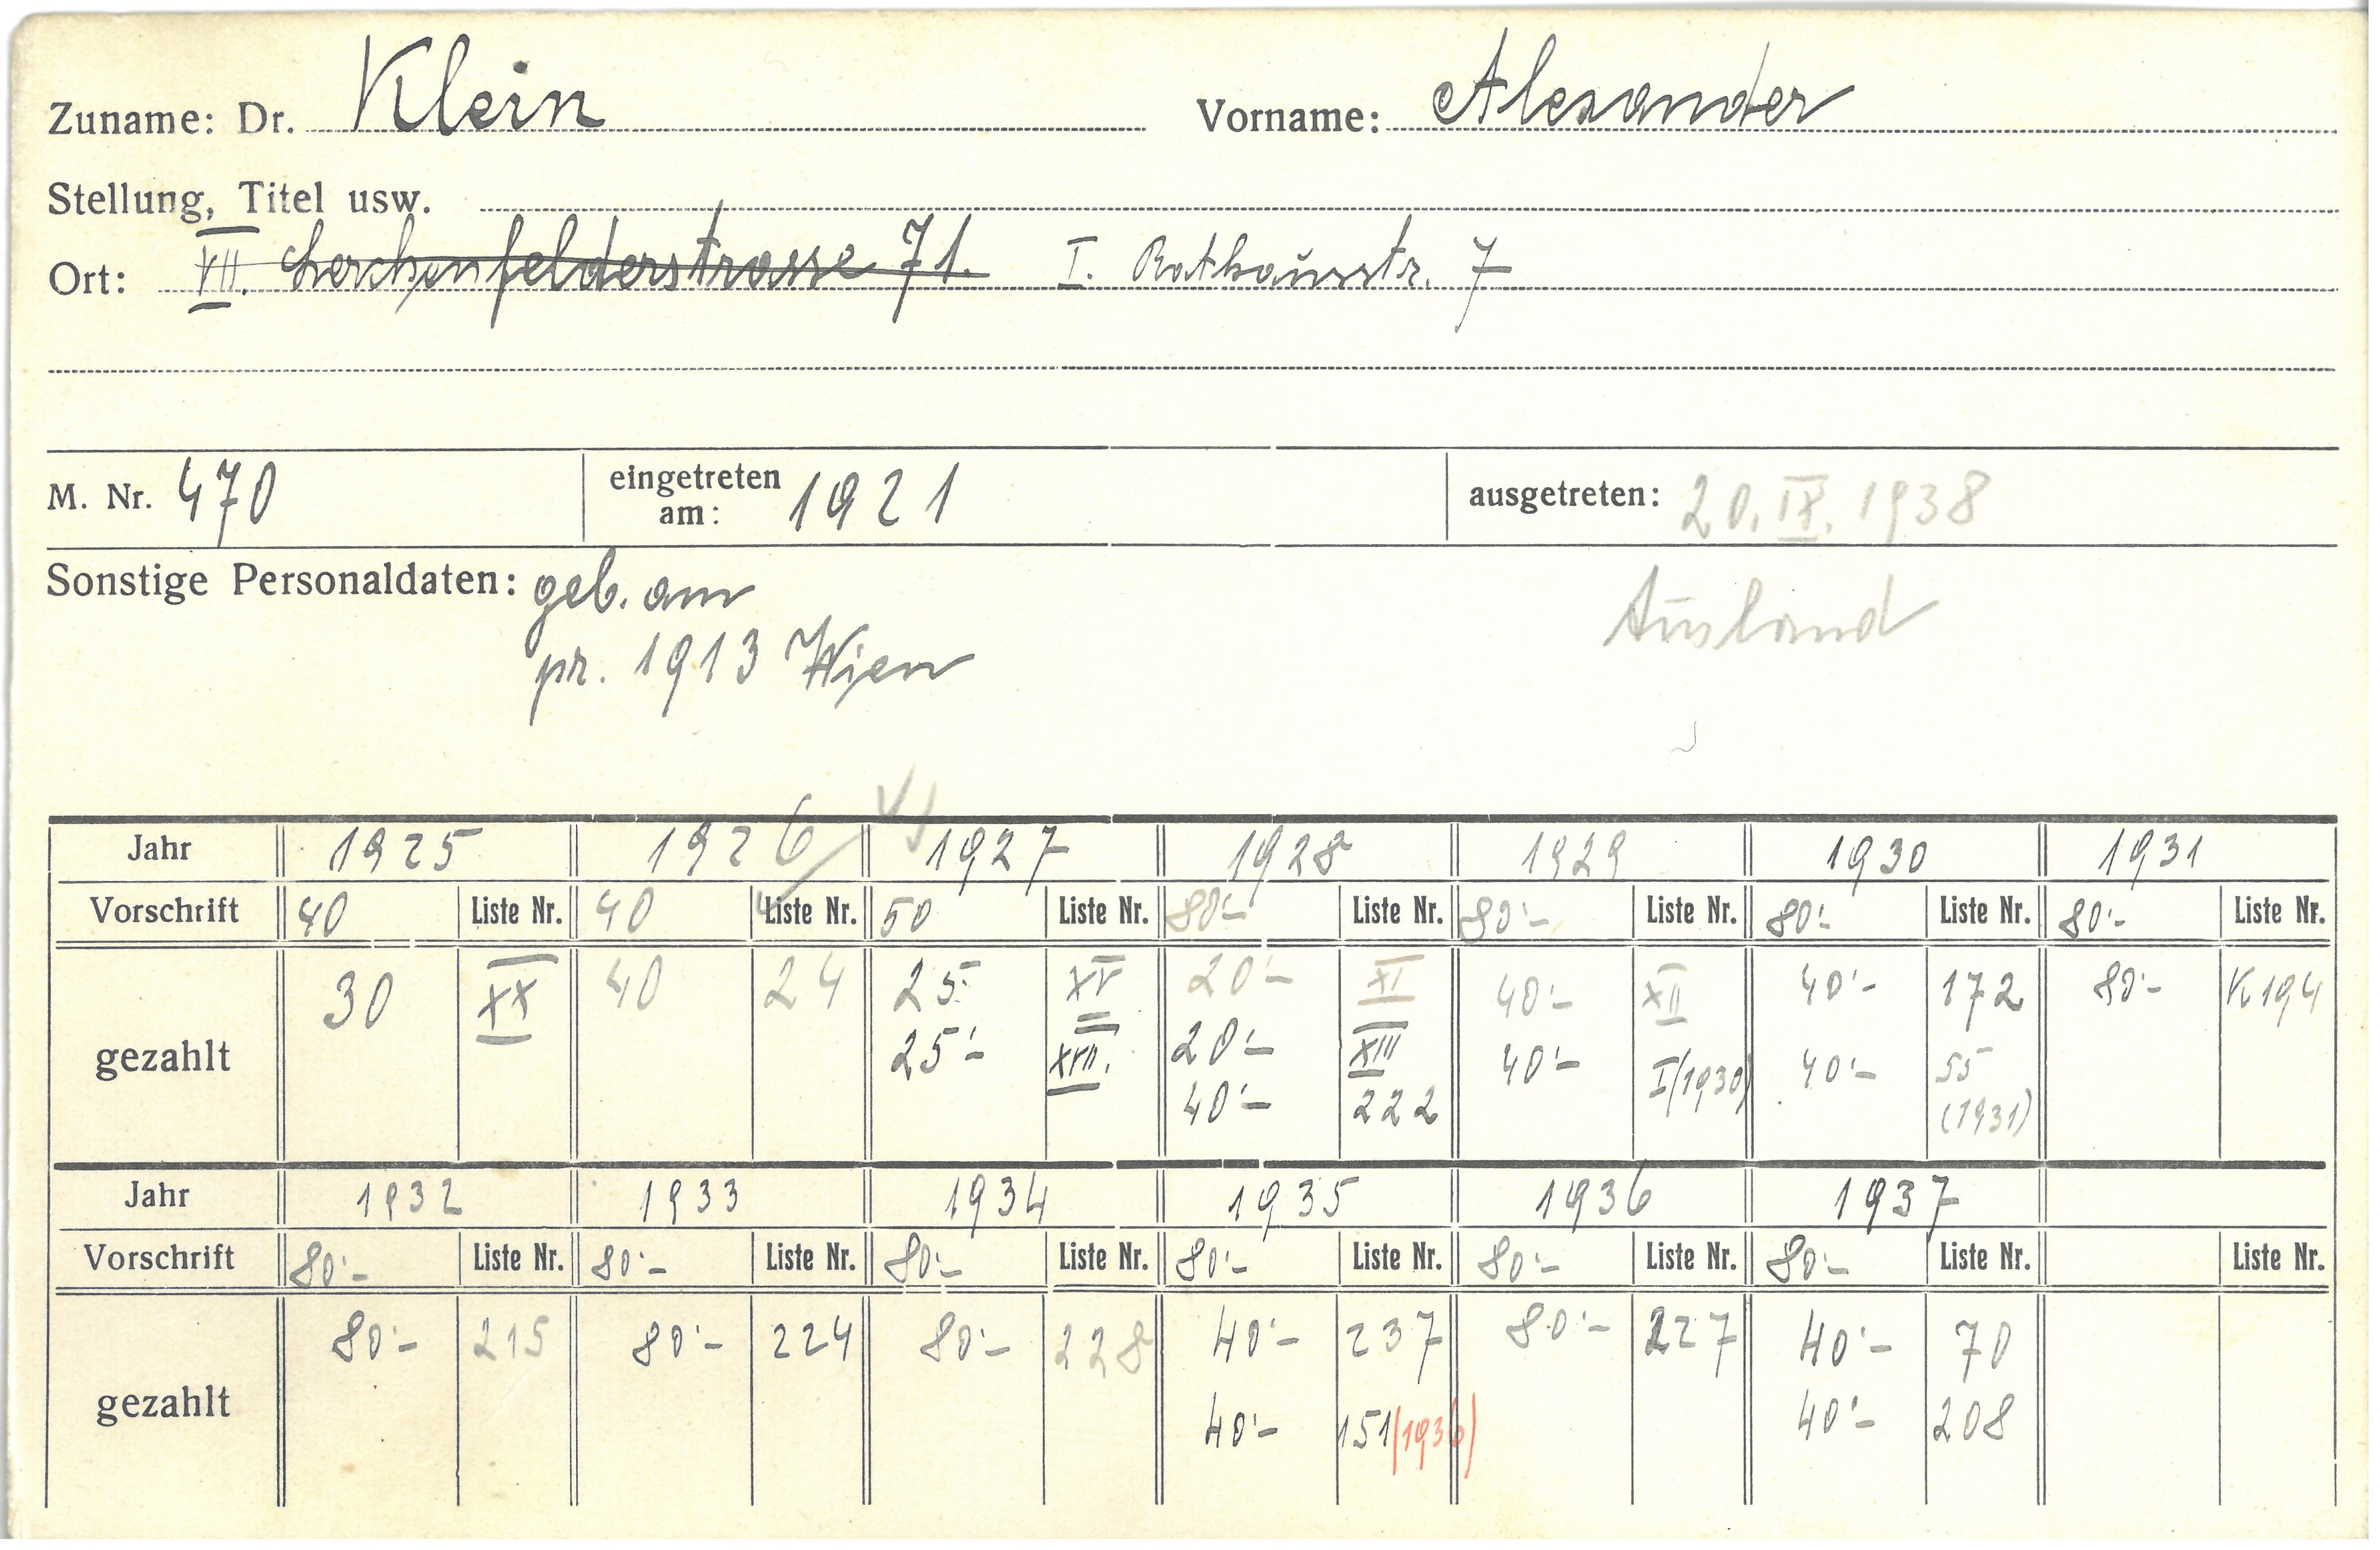 Zuname: Dr. Klein Vorname: Alexander
Stellung, Titel usw.
Ort: VII. Lerchenfelderstrasse 71. I. Rathausstr. 7
M. Nr. 470 eingetreten am: 1921 ausgetreten: 20. IX. 1938
Sonstige Personaldaten: geb. am Ausland
pr. 1913 Wien
Jahr 1925 1926 1927 1928 1929 1930 1931
Vorschrift 40 Liste Nr. 40 Liste Nr. 50 Liste Nr. 80'- Liste Nr. 80'- Liste Nr. 80'- Liste Nr. 80'- Liste Nr.
gezahlt 30 XX 40 24 25'- XV 20'- XI 40'- XII 40'- 172 80'- K 194
25'- XVII. 20'- XIII 40'- I(1930) 40'- 55
40'- 222 (1931)
Jahr 1932 1933 1934 1935 1936 1937
Vorschrift 80'- Liste Nr. 80'- Liste Nr. 80'- Liste Nr. 80'- Liste Nr. 80'- Liste Nr. 80'- Liste Nr. Liste Nr.
gezahlt 80'- 215 80'- 224 80'- 228 40'- 237 80'- 227 40'- 70
40'- 151(1936) 40'- 208